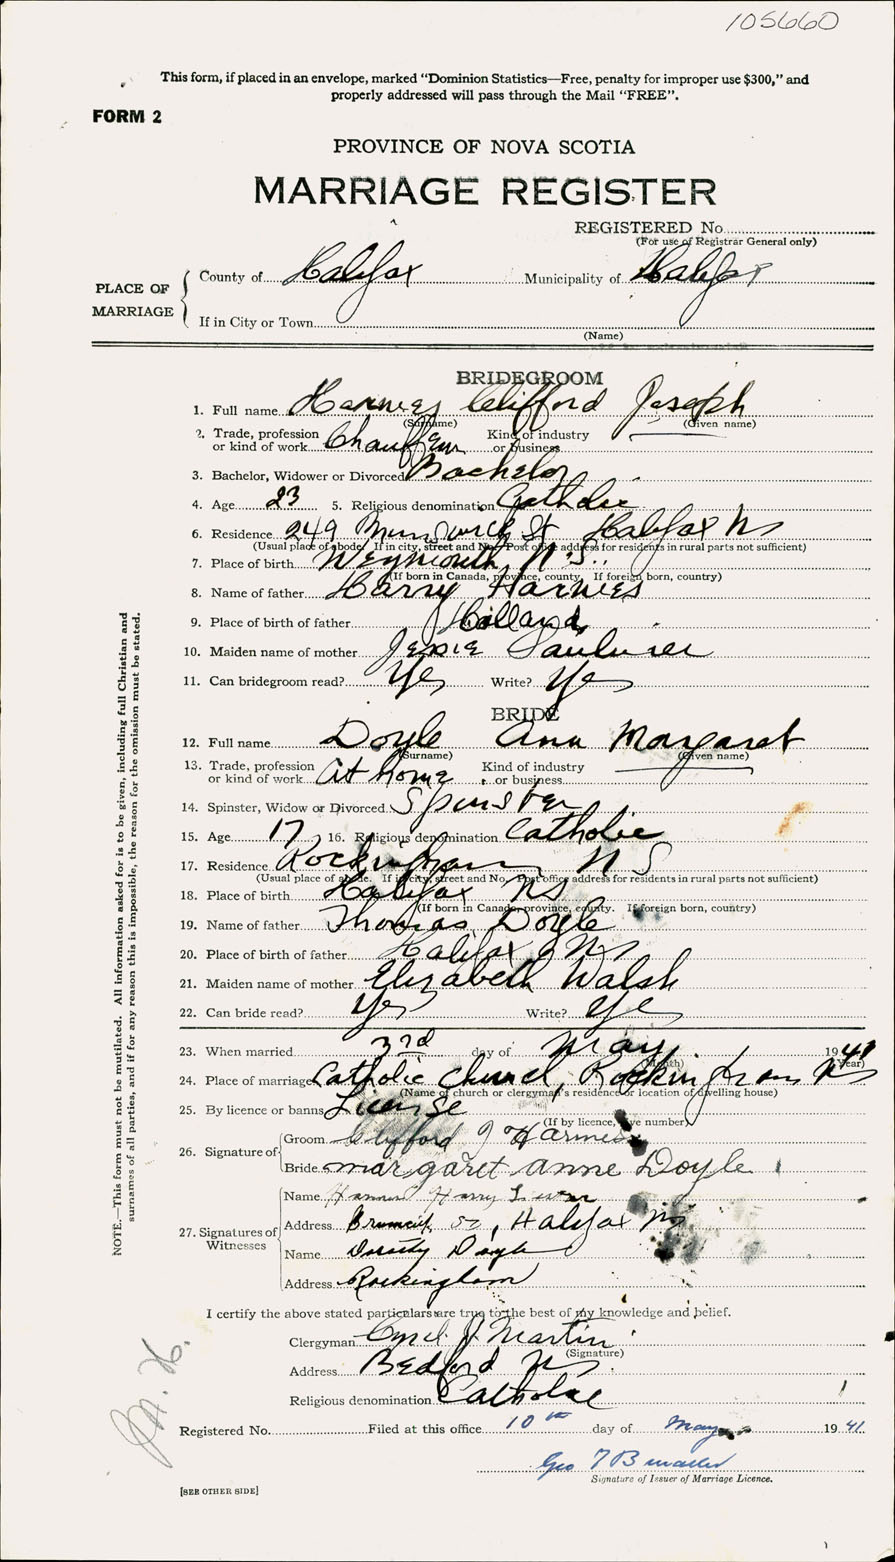 105660
This form, if placed in an envelope, marked "Dominion Statistics—Free, penalty for improper use $300," and
properly addressed will pass through the Mail "FREE".
FORM 2
PROVINCE OF NOVA SCOTIA
MARRIAGE REGISTER
REGISTERED No.
(For use of Registrar General only)
PLACE OF MARRIAGE
County of Halifax Municipality of Halifax
If in City or Town
(Name)
BRIDEGROOM
1. Full name Harnies Clifford Joseph
(Surname) (Given name)
2. Trade, profession or kind of work Chauffeur Kind of industry or business
3. Bachelor, Widower or Divorced Bachelor
4. Age 23 5. Religious denomination Catholic
6. Residence 249 St Halifax NS
(Usual place of abode. If in city, street and No. Post office address for residents in rural parts not sufficient)
7. Place of birth Weymouth, N.S.
(If born in Canada, province, county. If foreign born, country)
8. Name of father Harry Harnies
9. Place of birth of father Holland
10. Maiden name of mother Jessie Saulnier
11. Can bridegroom read? Yes Write? Yes
BRIDE
12. Full name Doyle Ann Margaret
(Surname) (Given name)
13. Trade, profession or kind of work At home Kind of industry or business
14. Spinster, Widow or Divorced Spinster
15. Age 17 16. Religious denomination Catholic
17. Residence Rockingham N S
(Usual place of abode. If in city, street and No. Post office address for residents in rural parts not sufficient)
18. Place of birth Halifax NS
(If born in Canada, province, county. If foreign born, country)
19. Name of father Thomas Doyle
20. Place of birth of father Halifax NS
21. Maiden name of mother Elizabeth Walsh
22. Can bride read? Yes Write? Yes
23. When married 3rd day of May 1941
(Month) (Year)
24. Place of marriage Catholic Church, Rockingham NS
(Name of church or clergyman's residence or location of dwelling house)
25. By licence or banns License
(If by licence, give number)
26. Signature of
Groom Clifford J Harnies
Bride margaret anne Doyle
27. Signatures of Witnesses
Name Harry
Address Brunswick St, Halifax NS
Name Dorothy Doyle
Address Rockingham
I certify the above stated particulars are true to the best of my knowledge and belief.
Clergyman Cyril J. Martin
(Signature)
Address Bedford NS
Religious denomination Catholic
Registered No. Filed at this office 10th day of May 1941
Geo
Signature of Issuer of Marriage Licence.
[SEE OTHER SIDE]
NOTE.—This form must not be mutilated. All information asked for is to be given, including full Christian and
surnames of all parties, and if for any reason this is impossible, the reason for the omission must be stated.